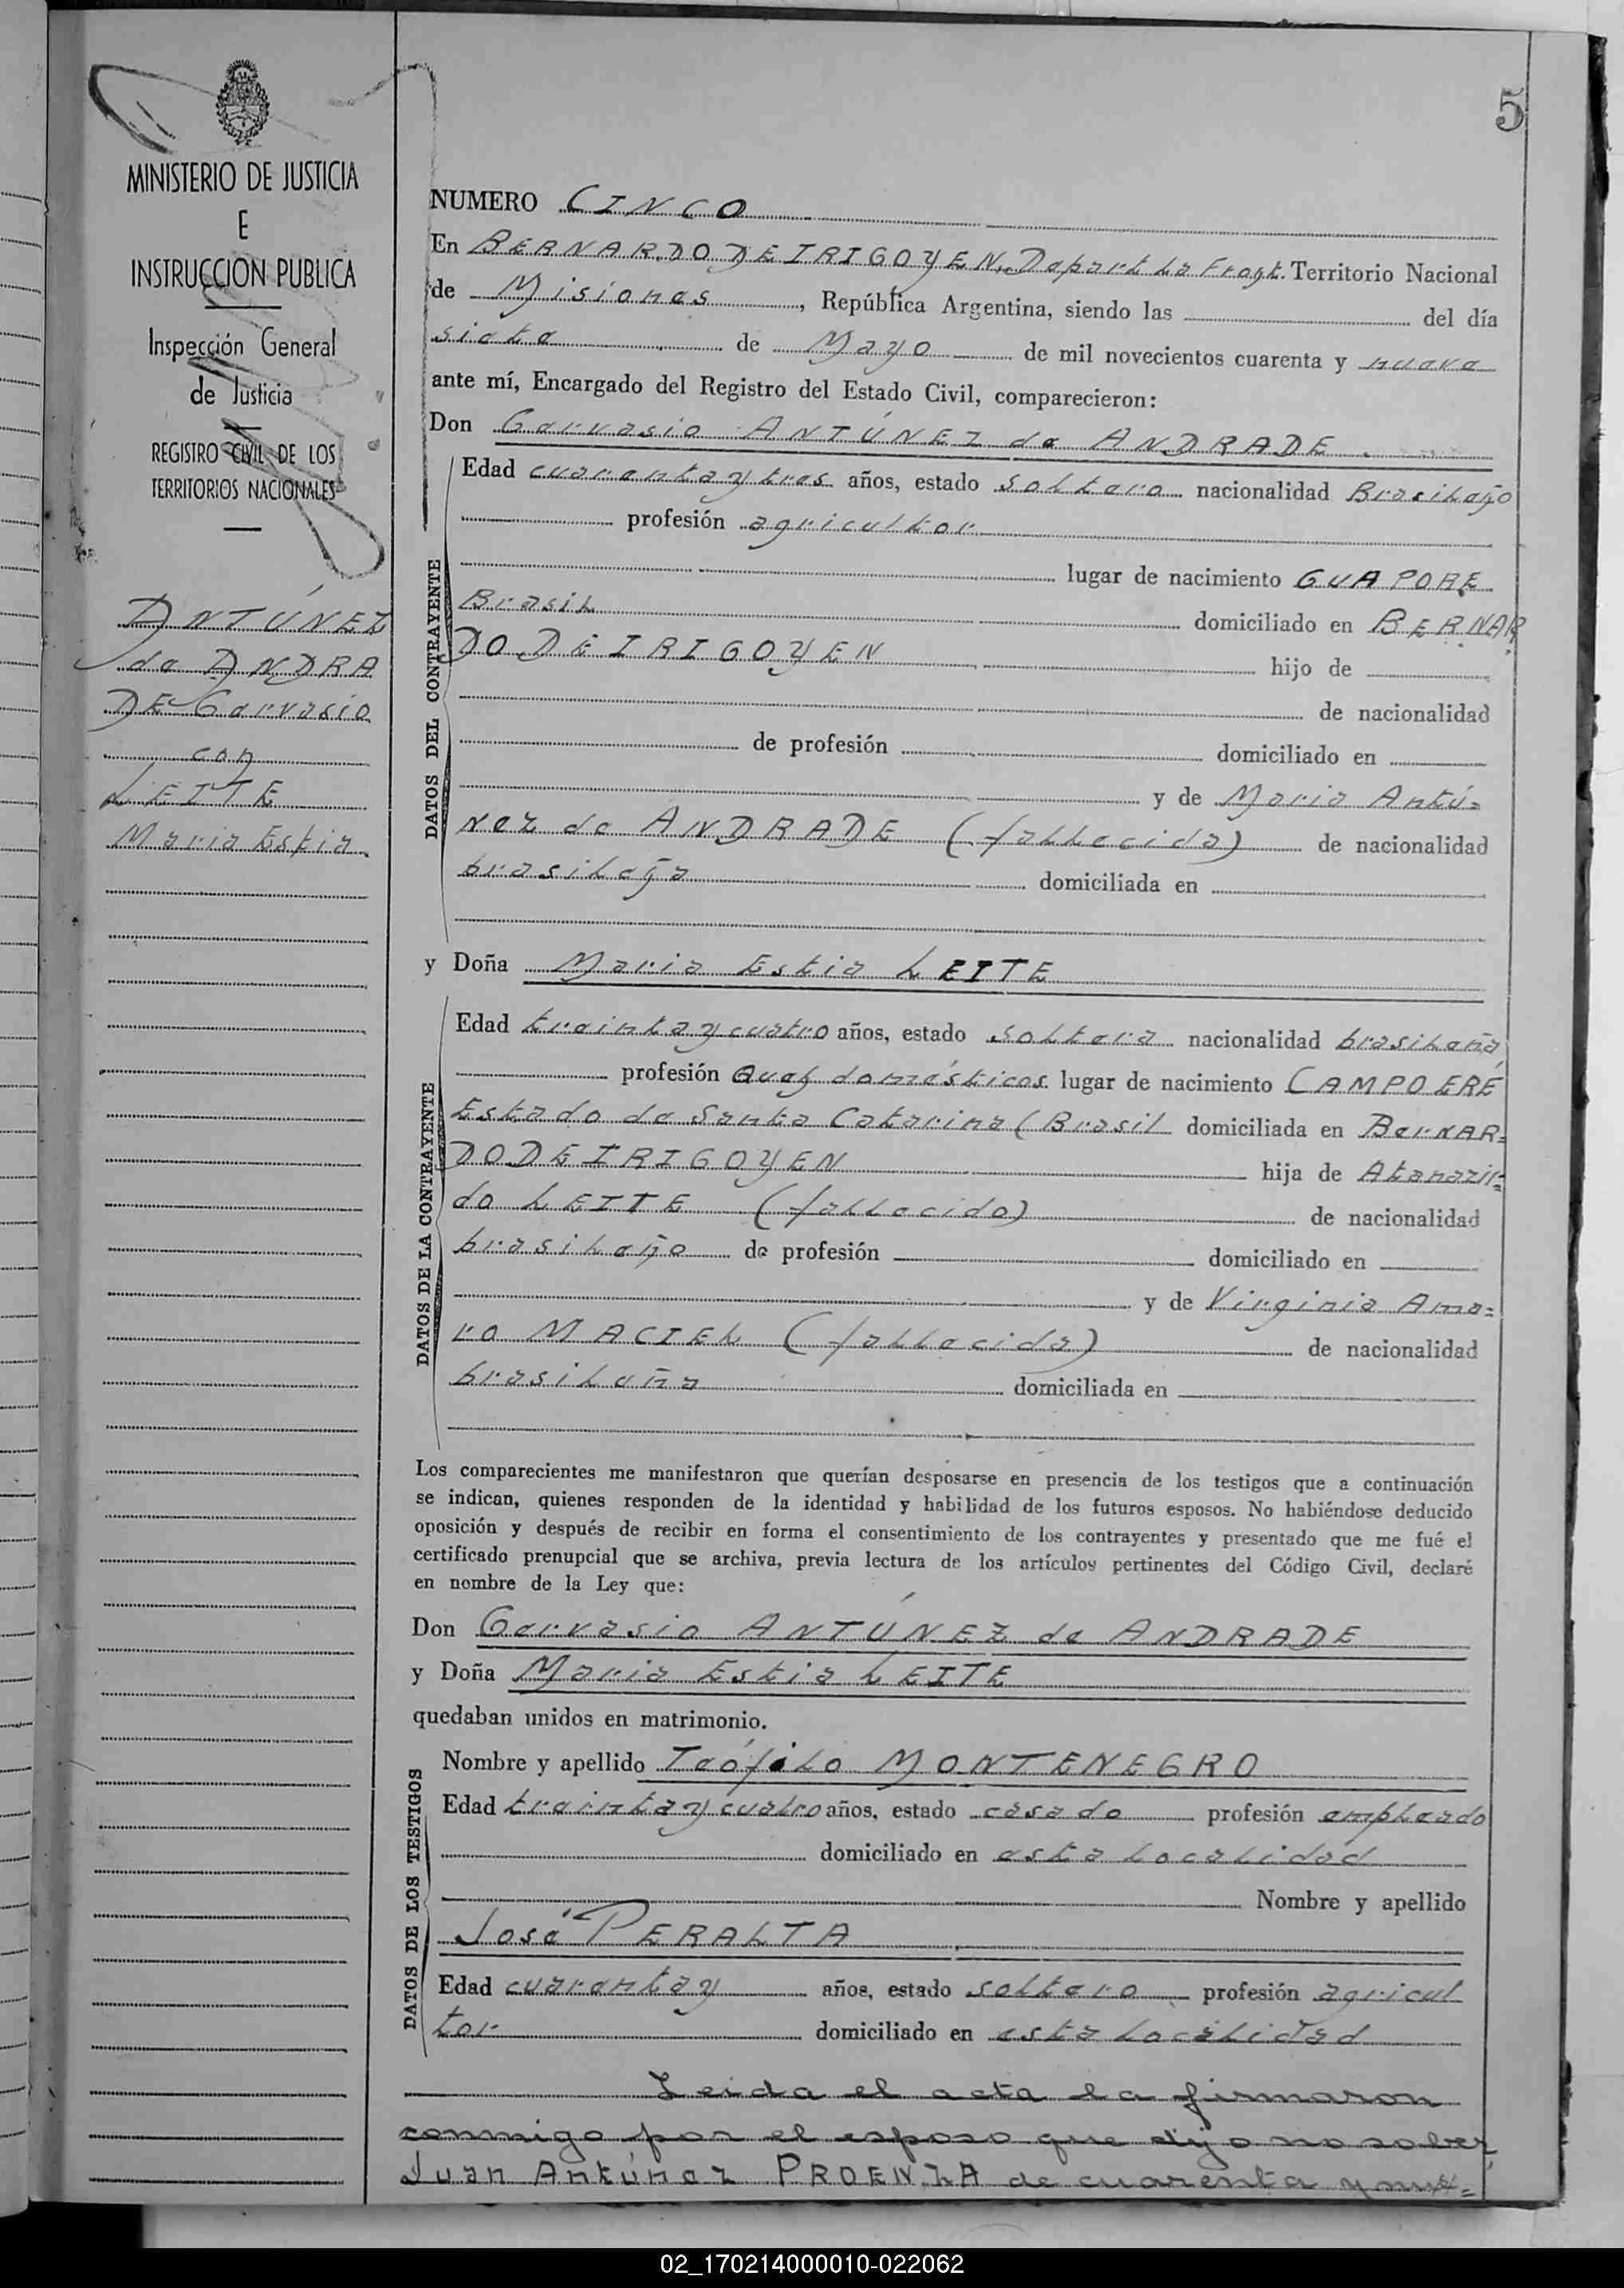 5
MINISTERIO DE JUSTICIA
E
INSTRUCCIÓN PUBLICA
Inspección General
de Justicia
REGISTRO CIVIL DE LOS
TERRITORIOS NACIONALES
ANTÚNEZ
de ANDRA
DE Gervasio
con
LEITE
Maria Estia
NUMERO CINCO
En BERNARDO DE IRIGOYEN. Depart to Frogt. Territorio Nacional
de Misiones, República Argentina, siendo las del día
siete de Mayo de mil novecientos cuarenta y nueve
ante mí, Encargado del Registro del Estado Civil, comparecieron:
Don Gervasio ANTÚNEZ de ANDRADE
DATOS DEL CONTRAYENTE
Edad cuarenta y tres años, estado soltero nacionalidad Brasileño
profesión agricultor
lugar de nacimiento GUAPORE
Brasil domiciliado en BERNAR
DO DE IRIGOYEN hijo de
de nacionalidad
de profesión domiciliado en
y de Maria Antú=
nez de ANDRADE (fallecida) de nacionalidad
brasileña domiciliada en
y Doña Maria Estia LEITE
DATOS DE LA CONTRAYENTE
Edad treinta y cuatro años, estado soltera nacionalidad brasileña
profesión Queh domésticos lugar de nacimiento CAMPO ERÉ
Estado de Santa Catarina (Brasil domiciliada en BerNAR=
DO DE IRIGOYEN hija de Atanazil=
do LEITE (fallecido) de nacionalidad
brasileño de profesión domiciliado en
y de Virginia Ama=
ro MACIEL (fallecida) de nacionalidad
brasileña domiciliada en
Los comparecientes me manifestaron que querían desposarse en presencia de los testigos que a continuación
se indican, quienes responden de la identidad y habilidad de los futuros esposos. No habiéndose deducido
oposición y después de recibir en forma el consentimiento de los contrayentes y presentado que me fué el
certificado prenupcial que se archiva, previa lectura de los artículos pertinentes del Código Civil, declaré
en nombre de la Ley que:
Don Gervasio ANTÚNEZ de ANDRADE
y Doña Maria Estia LEITE
quedaban unidos en matrimonio.
DATOS DE LOS TESTIGOS
Nombre y apellido Teófilo MONTENEGRO
Edad treinta y cuatro años, estado casado profesión empleado
domiciliado en esta localidad
Nombre y apellido
José PERALTA
Edad cuarenta y años, estado soltero profesión agricul
tor domiciliado en esta localidad
Leida el acta la firmaron
conmigo por el esposo que dijo no saber,
Juan Antúnez PROENZA de cuarenta y nue=
02_170214000010-022062